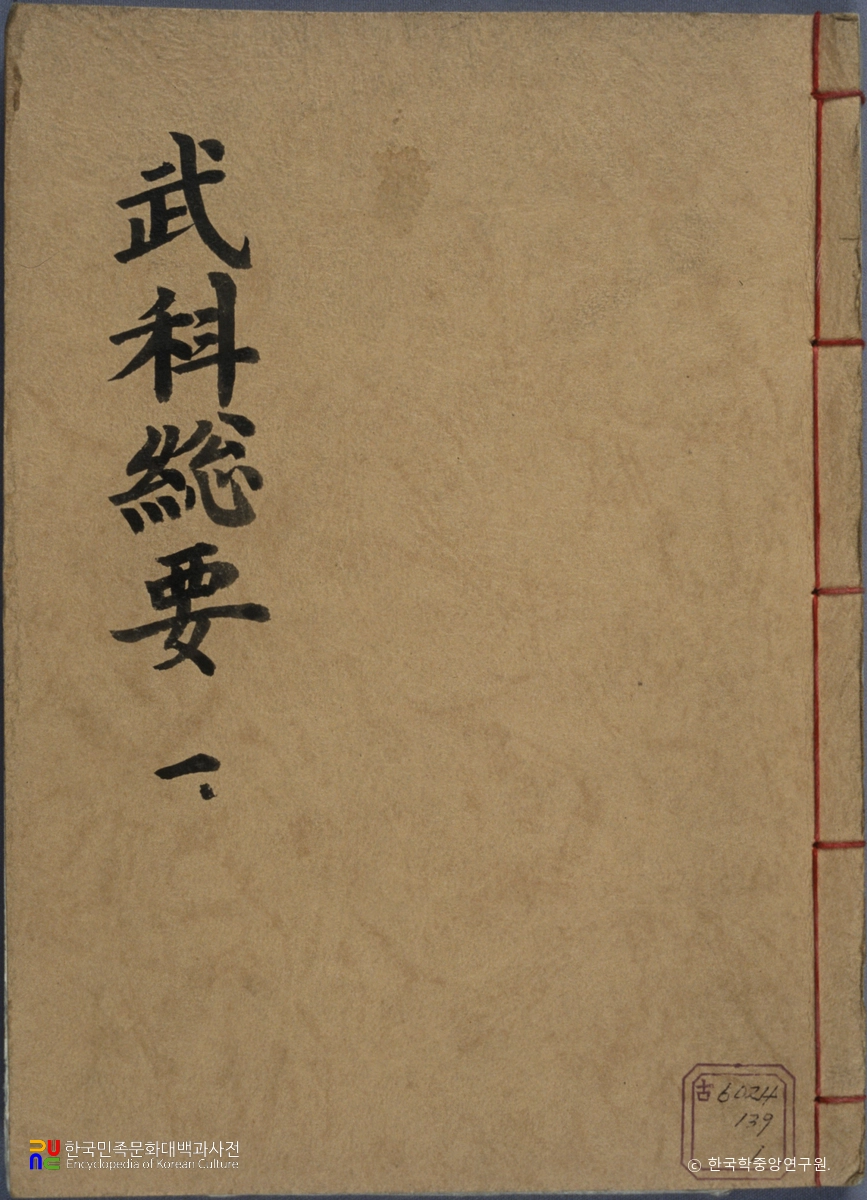 武科総要 一
古6024
139
1
한국민족문화대백과사전
Encyclopedia of Korean Culture
ⓒ 한국학중앙연구원.